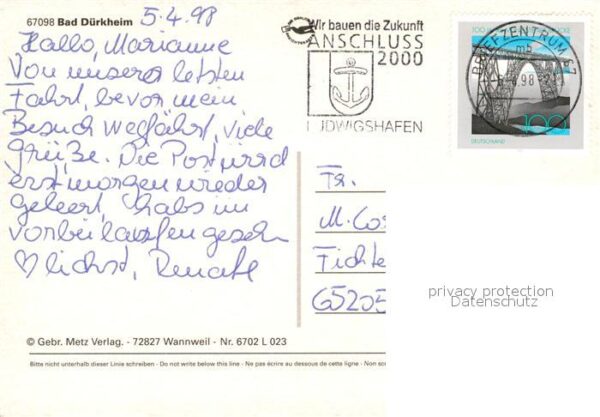 67098 Bad Dürkheim 5.4.98
Hallo, Marianne
Von unserer letzten
Fahrt, bevor mein
Besuch wegfährt, viele
grüße. Die Post wird
erst morgen wieder
geleert, habs im
vorbeilaufen gesehn
♡lichst, Renate
© Gebr. Metz Verlag. - 72827 Wannweil - Nr. 6702 L 023
Bitte nicht unterhalb dieser Linie schreiben - Do not write below this line - Ne pas écrire au dessous de cette ligne - Non scr
Wir bauen die Zukunft
ANSCHLUSS
2000
LUDWIGSHAFEN
BRIEFZENTRUM 67
mb
98
100
DEUTSCHLAND
Fr.
M. Cos
Fichte
65205
privacy protection
Datenschutz